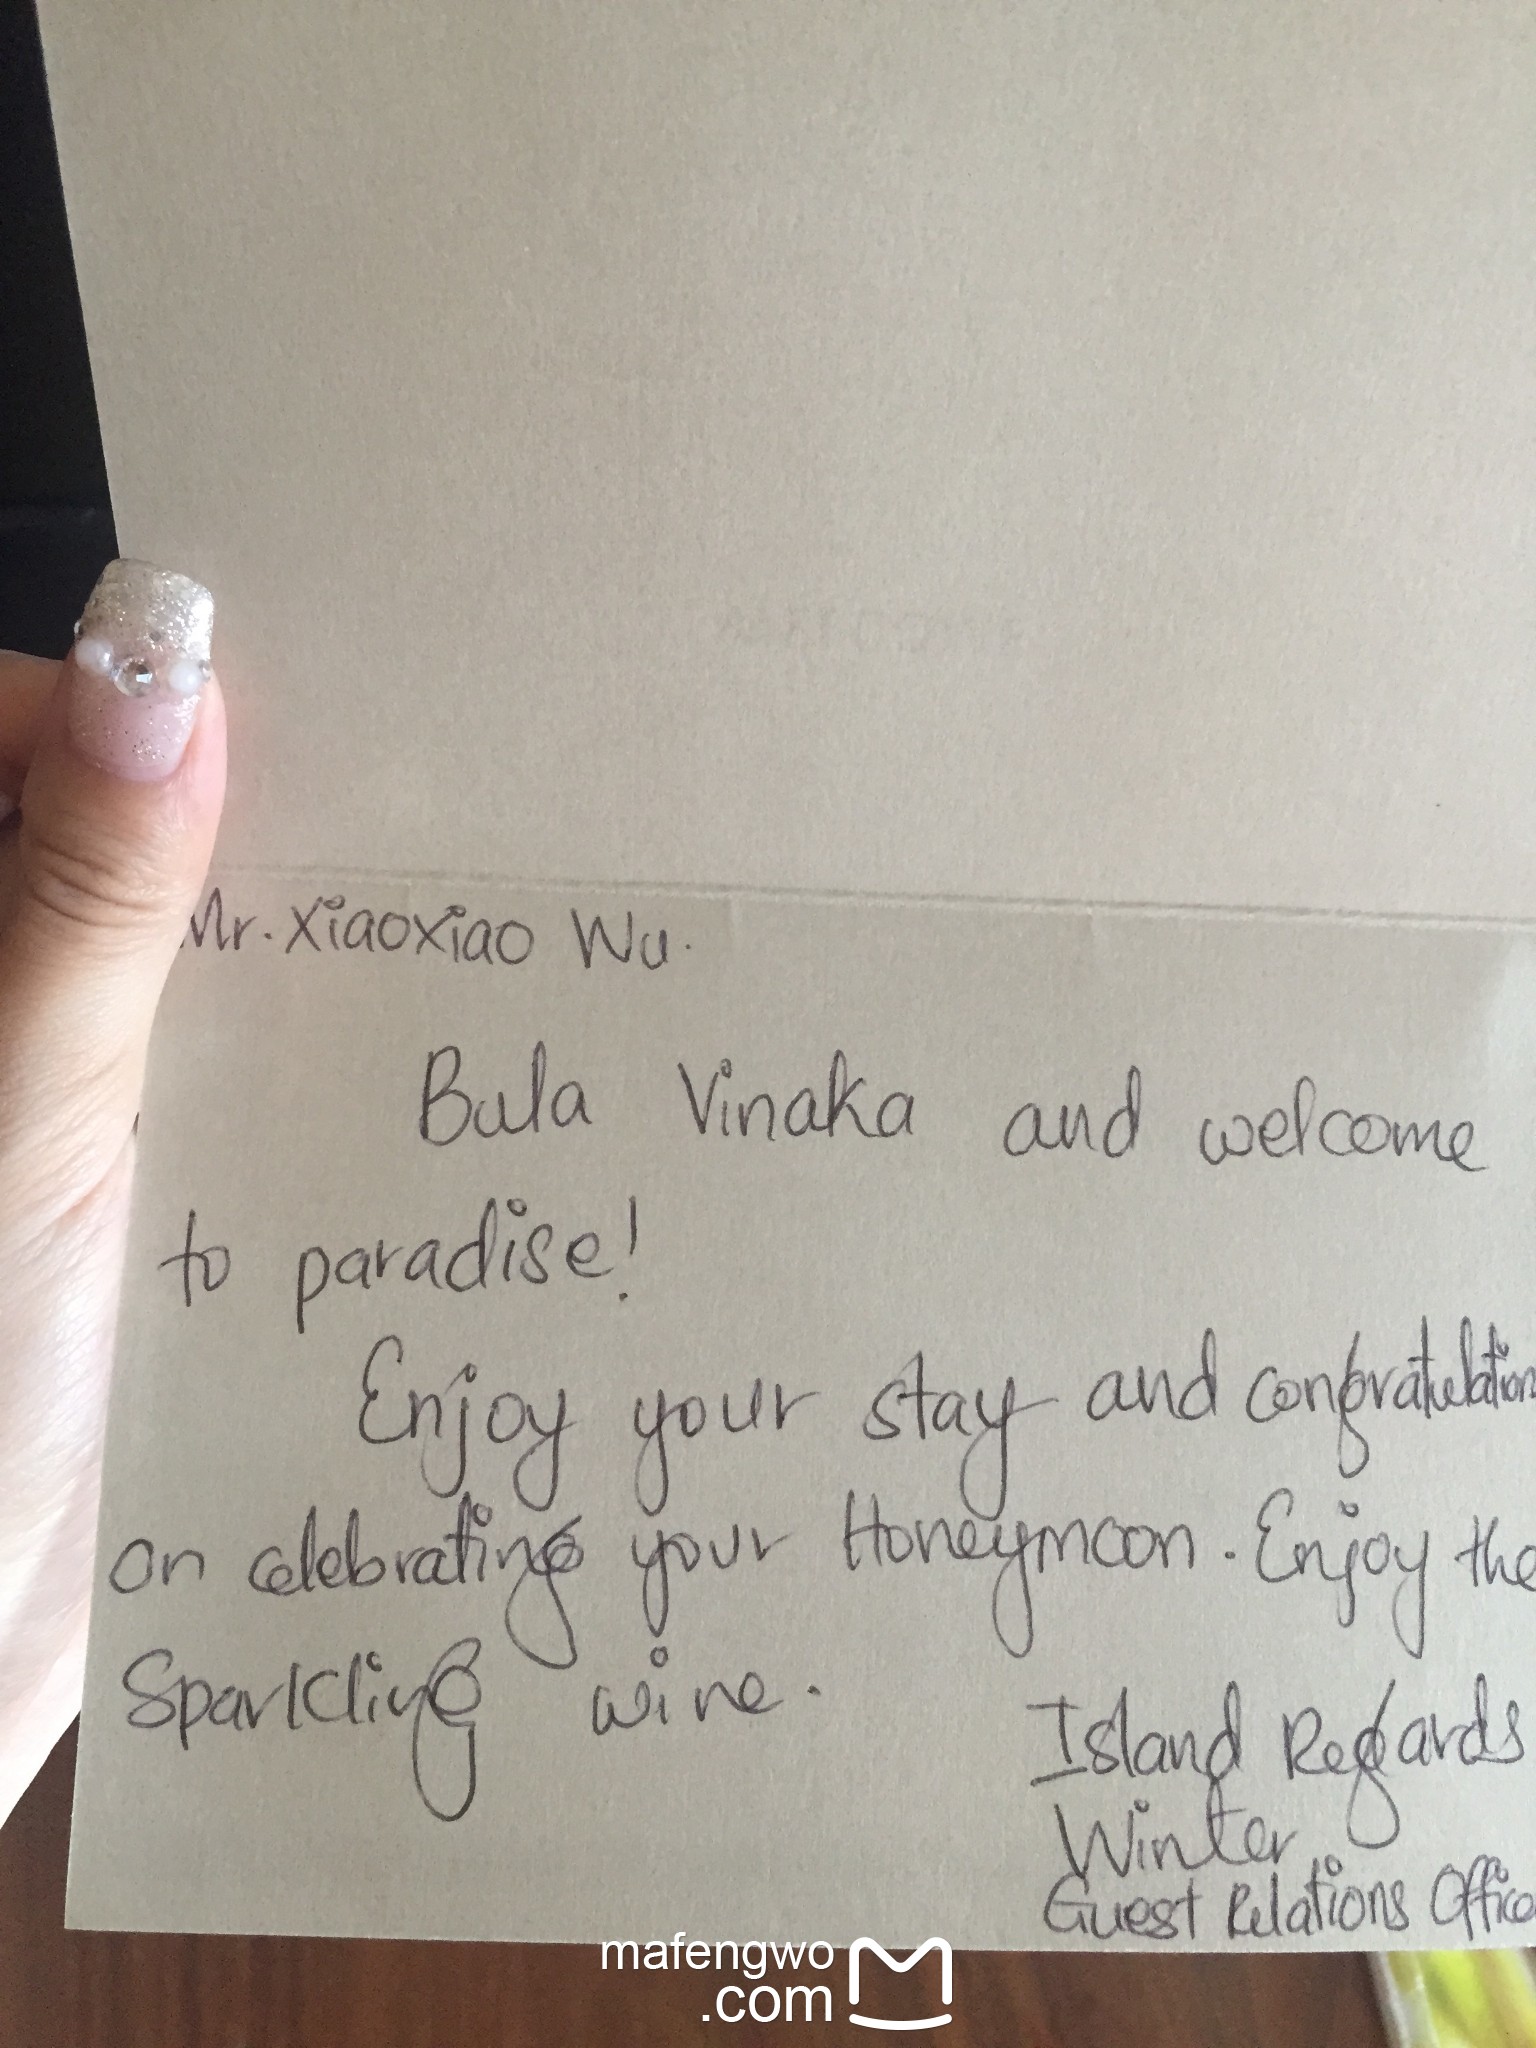 Mr. Xiaoxiao Wu.
Bula Vinaka and welcome
to paradise!
Enjoy your stay and congratulation
on celebrating your Honeymoon. Enjoy the
Sparkling wine.
Island Regards
Winter
Guest Relations Office
mafengwo
.com